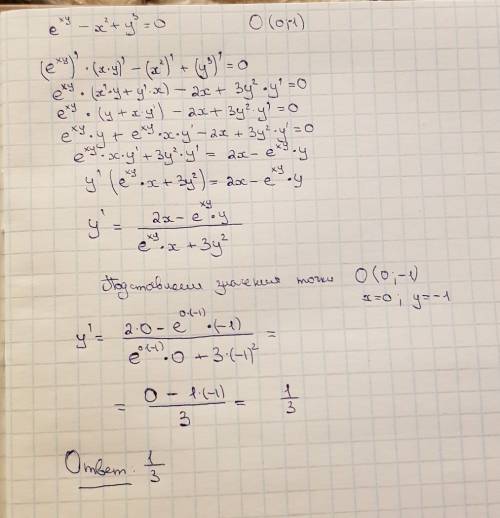 e^{xy} - x² + y³ = 0 O (0;-1)
(e^{xy})' · (x·y)' - (x²)' + (y³)' = 0
e^{xy} · (x'·y + y'·x) - 2x + 3y² · y' = 0
e^{xy} · (y + xy') - 2x + 3y² · y' = 0
e^{xy} · y + e^{xy} · x · y' - 2x + 3y² · y' = 0
e^{xy} · x · y' + 3y² · y' = 2x - e^{xy} · y
y' (e^{xy} · x + 3y²) = 2x - e^{xy} · y
y' = \frac{2x - e^{xy} · y}{e^{xy} · x + 3y²}
Подставляем значения точки O (0;-1)
x=0; y=-1
y' = \frac{2·0 - e^{0·(-1)} · (-1)}{e^{0·(-1)} · 0 + 3·(-1)²} =
= \frac{0 - 1·(-1)}{3} = \frac{1}{3}
Ответ: \frac{1}{3}